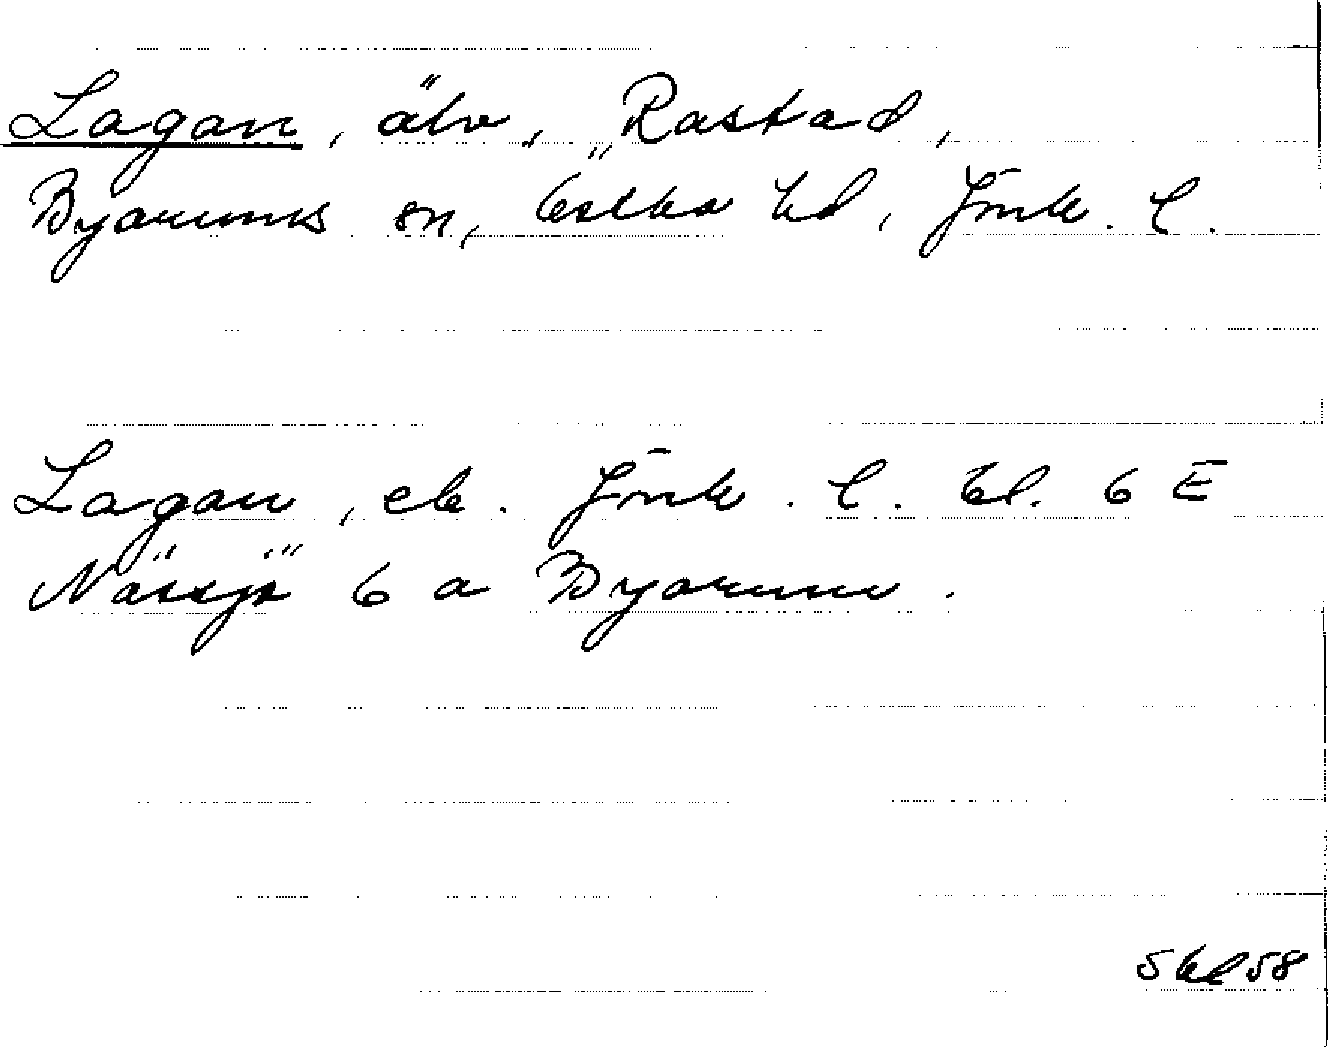 Lagan, älv, „Rastad,
Byarums sn, Östbo hd, Jönk. l.
Lagan, ek. Jönk. l. bl. 6 E
Nässjö 6 a Byarum.